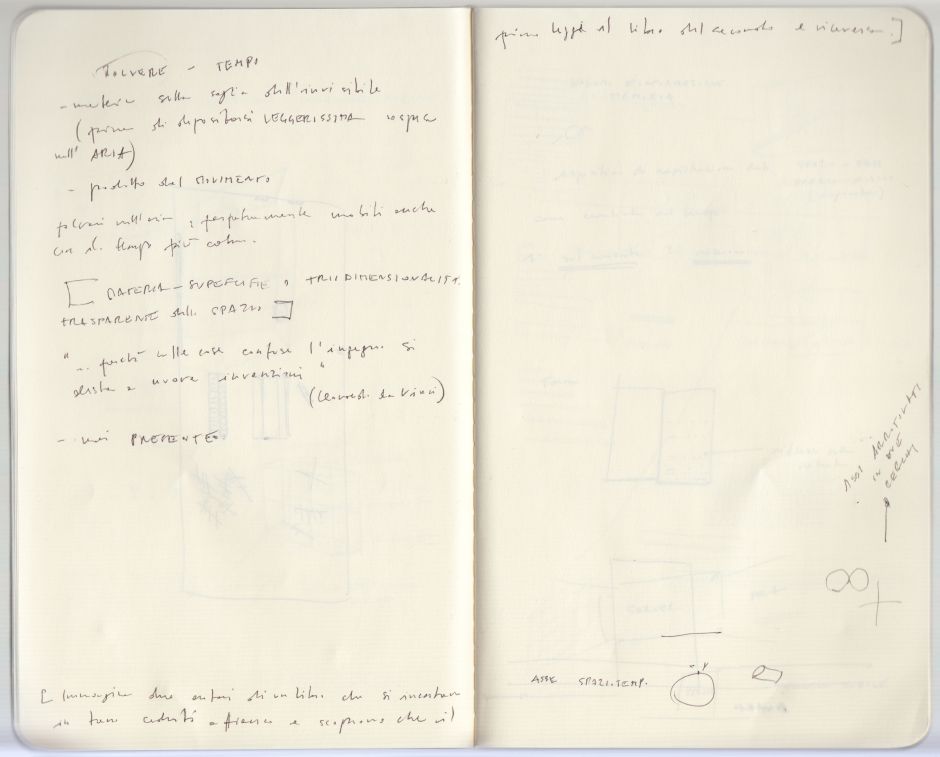 POLVERE - TEMPO
- materia sulla soglia dell'invisibile
(prima di depositarsi LEGGERISSIMA sospesa
nell'ARIA)
- prodotto dal MOVIMENTO
nell'aria, perpetuamente mobili anche
con il tempo più
[ MATERIA - SUPERFICIE o TRIDIMENSIONALITÀ
TRASPARENTE dello SPAZIO ]
"... perché nelle cose confuse l'ingegno si
desta a nuove invenzioni"
(Leonardo da Vinci)
- PRESENTE
[ Immagina due autori di un libro che si incontrano
in treno seduti a fianco e scoprono che il
primo legge il libro del secondo e viceversa.]
ASSI
IN DUE
CERCHI
ASSE SPAZI.TEMP.